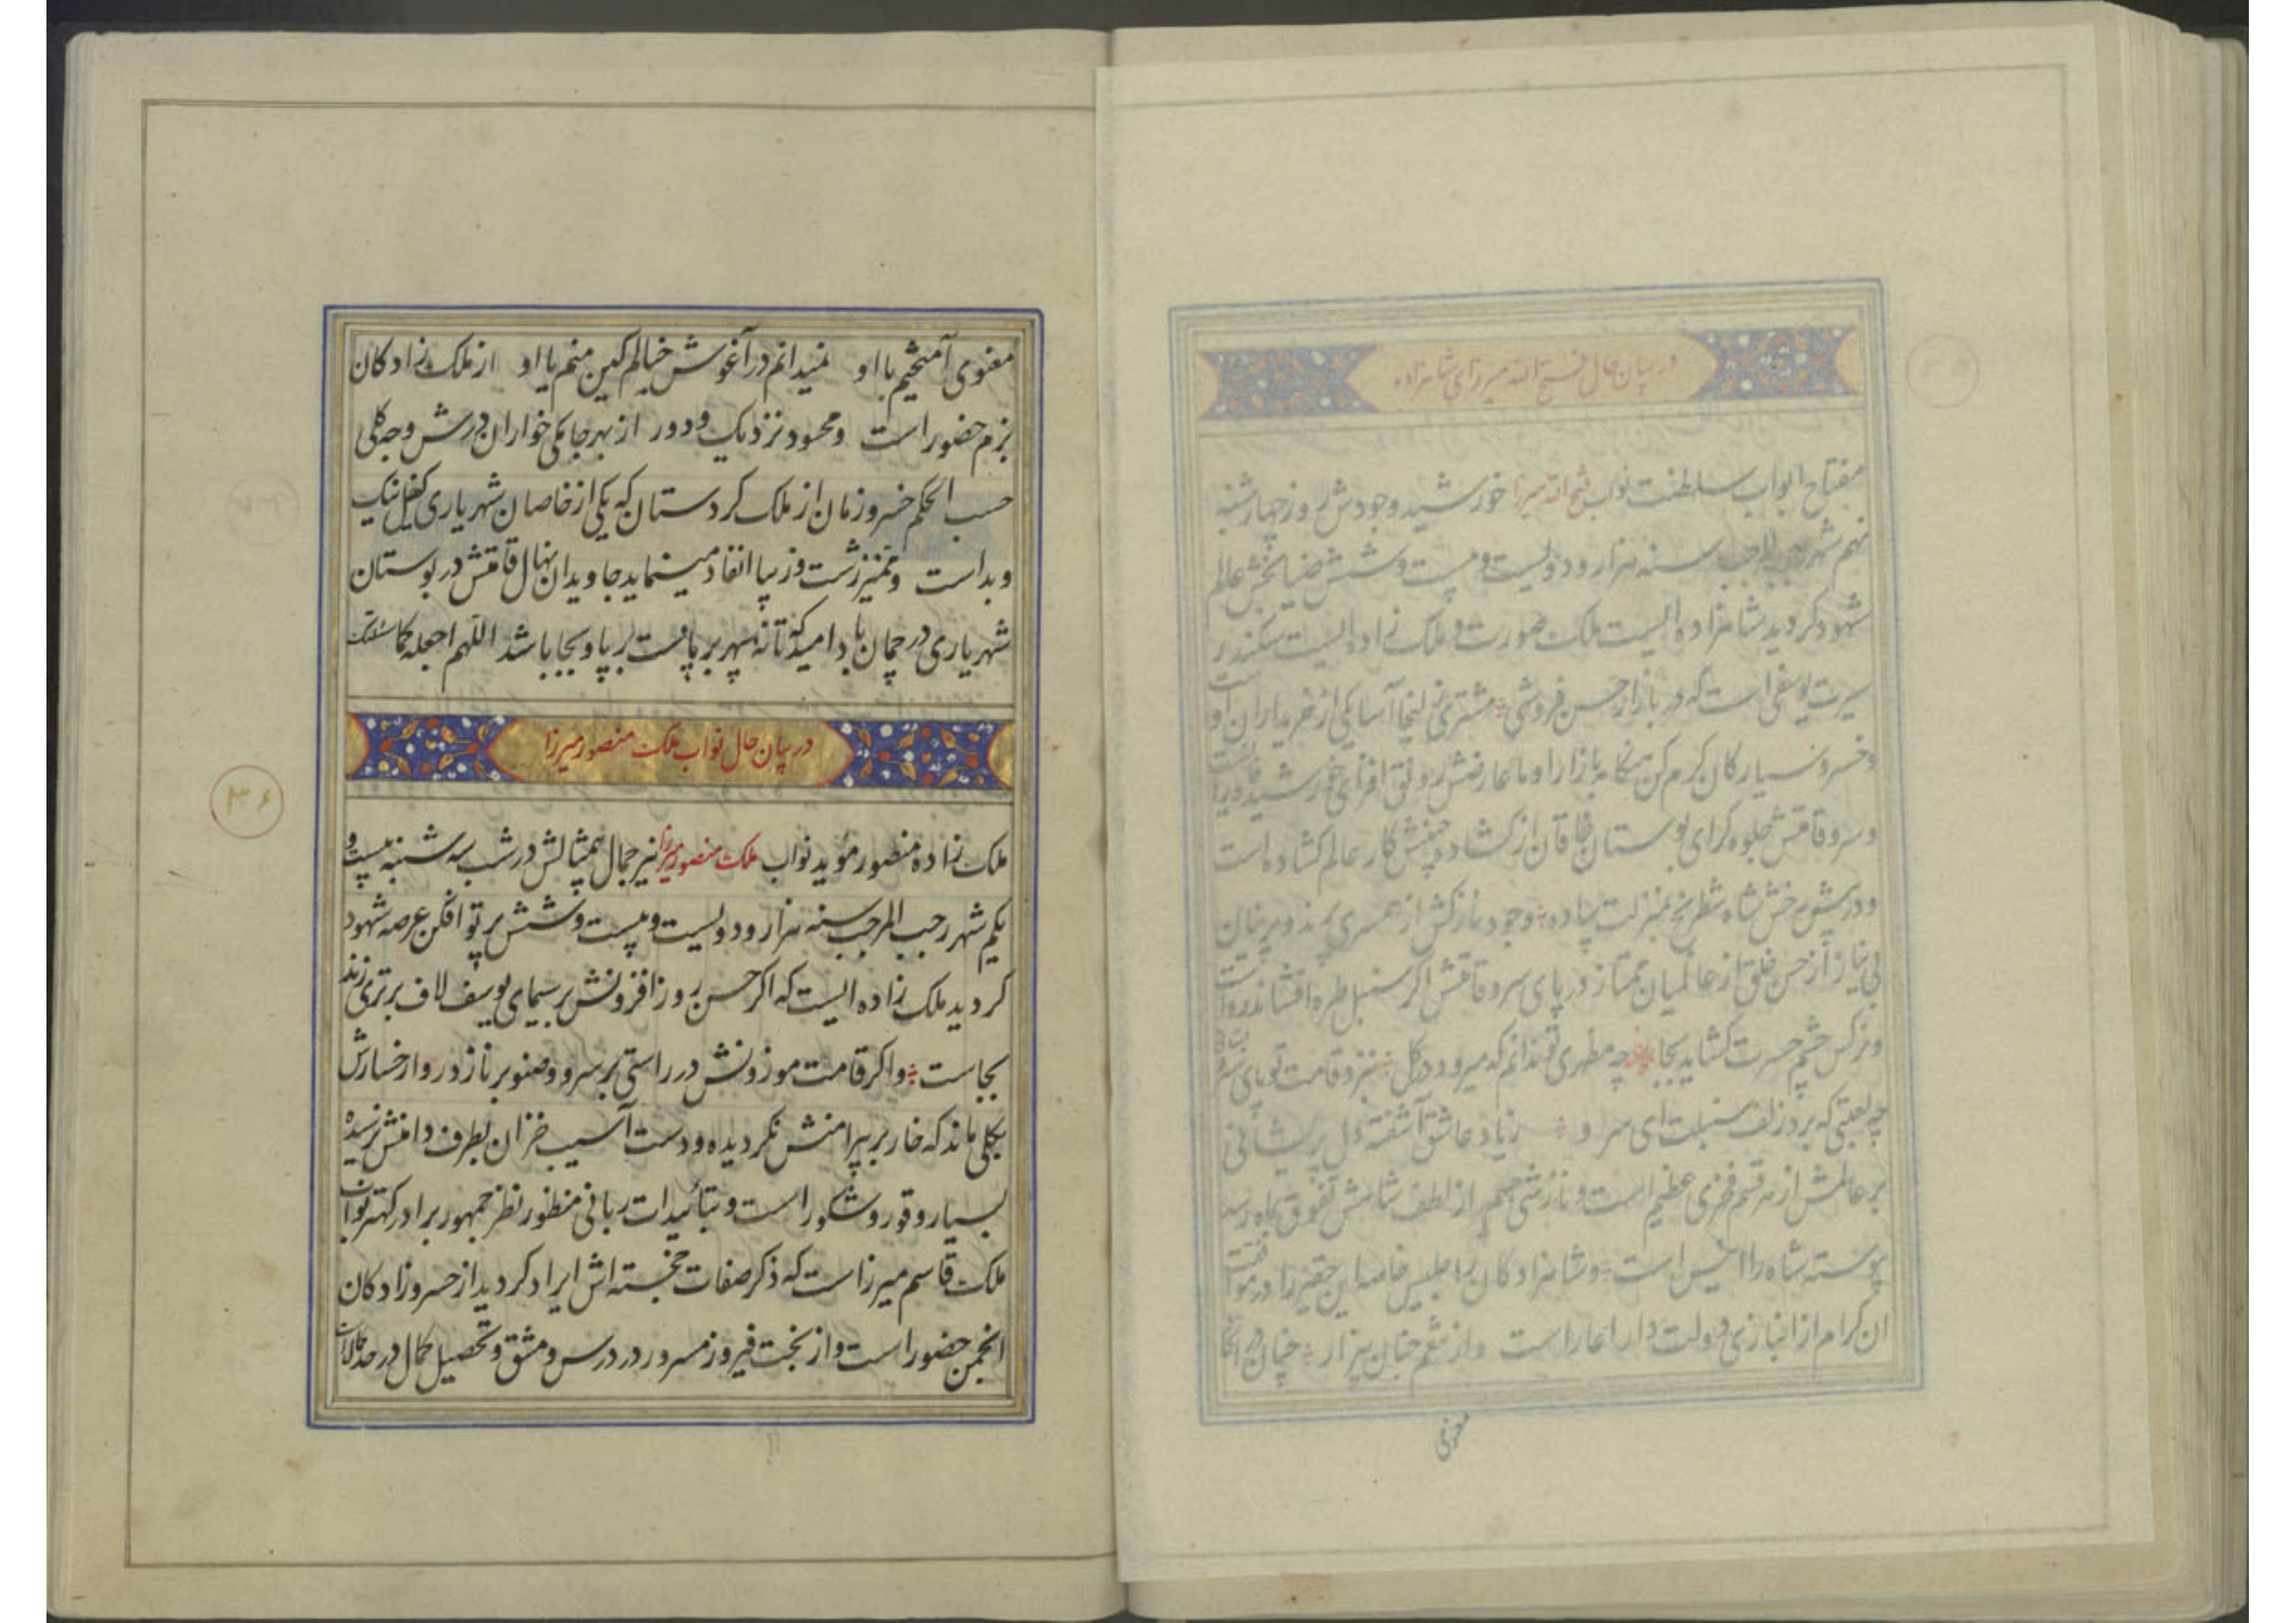 در بیان حال فتح الله میرزای شاهزاده
مفتاح ابواب سلطنت نواب فتح الله میرزا خورشید وجودش روز چهارشنبه
نهم شهر رجب المرجب سنه هزار و دویست و بیست و شش ضیابخش عالم
شهود کردید شاهزاده ایست ملک صورت و ملک زاده ایست سکندر
سیرت یوسفی است که در بازار حسن فروشی مشتری زلیخا آسا یکی از خریداران او است
و خسرو سیارکان کرم کن هنکامه بازار او ماه عارضش رونق افزای خورشید
و سرو قامتش جلوه کرای بوستان خاقان از کشاد جبینش کار عالم کشاده است
و در پیش رخش شاه شطرنج بمنزلت پیاده وجود نازکش از همسری
بی نیاز از حسن خلق از عالمیان ممتاز در پای سرو قامتش اکر سنبل طره افشاند رواست
و نرکس چشم حسرت کشاید بجا چه مظهری تو ندانم که میرود در کل ز سرو قامت تو پای سرو بستانی
چه لعبتی که برد زلف سنبلت ای سرو ز یاد عاشق آشفته دل پریشانی
بر عالمش از هر قسم فخری عظیم است و نازشی از لطف شاهش تفوق بماه رسد
پیوسته شاه را انیس است و شاهزادکان را جلیس خاصه این حقیر را در موافقت
ان کرام از انبازی دولت دارا عار است و از نعیم جنان بیزار چنان در اتحاد
معنوی
معنوی آمیختیم با او نمیدانم در آغوش خیالم کین منم یا او از ملک زادکان
بزم حضور است و محسود نزدیک و دور از بهر جامکی خواران درش وجه کلی
حسب الحکم خسرو زمان از ملک کردستان که یکی از خاصان شهریاری کفیل نیک
و بد است و ممیز زشت و زیبا انفاد مینماید جاویدان نهال قامتش در بوستان
شهریاری در چمان باد امید که تا نه سپهر برپاست برپا و بجا باشد اللهم اجعله کما سئلتک
در بیان حال نواب ملک منصور میرزا
۳۶
ملک زاده منصور موید نواب ملک منصور میرزا نیر جمال بیمثالش در شب سه شنبه بیست و
یکم شهر رجب المرجب سنه هزار و دویست و بیست و شش پرتو افکن عرصه شهود
کردید ملک زاده ایست که اکر حسن روز افزونش بر سیمای یوسف لاف برتری زند
بجاست و اکر قامت موزونش در راستی بر سرو و صنوبر نازد روا رخسارش
بکلی ماند که خار بر پیرامنش نکردیده و دست آسیب خزان بطرف دامنش نرسیده
بسیار وقور و شکور است و بتائیدات ربانی منظور نظر جمهور برادر کهتر نواب
ملک قاسم میرزاست که ذکر صفات خجسته اش ایراد کردید از خسرو زادکان
انجمن حضور است و از بخت فیروز مسرور در درس و مشق و تحصیل کمال در حد